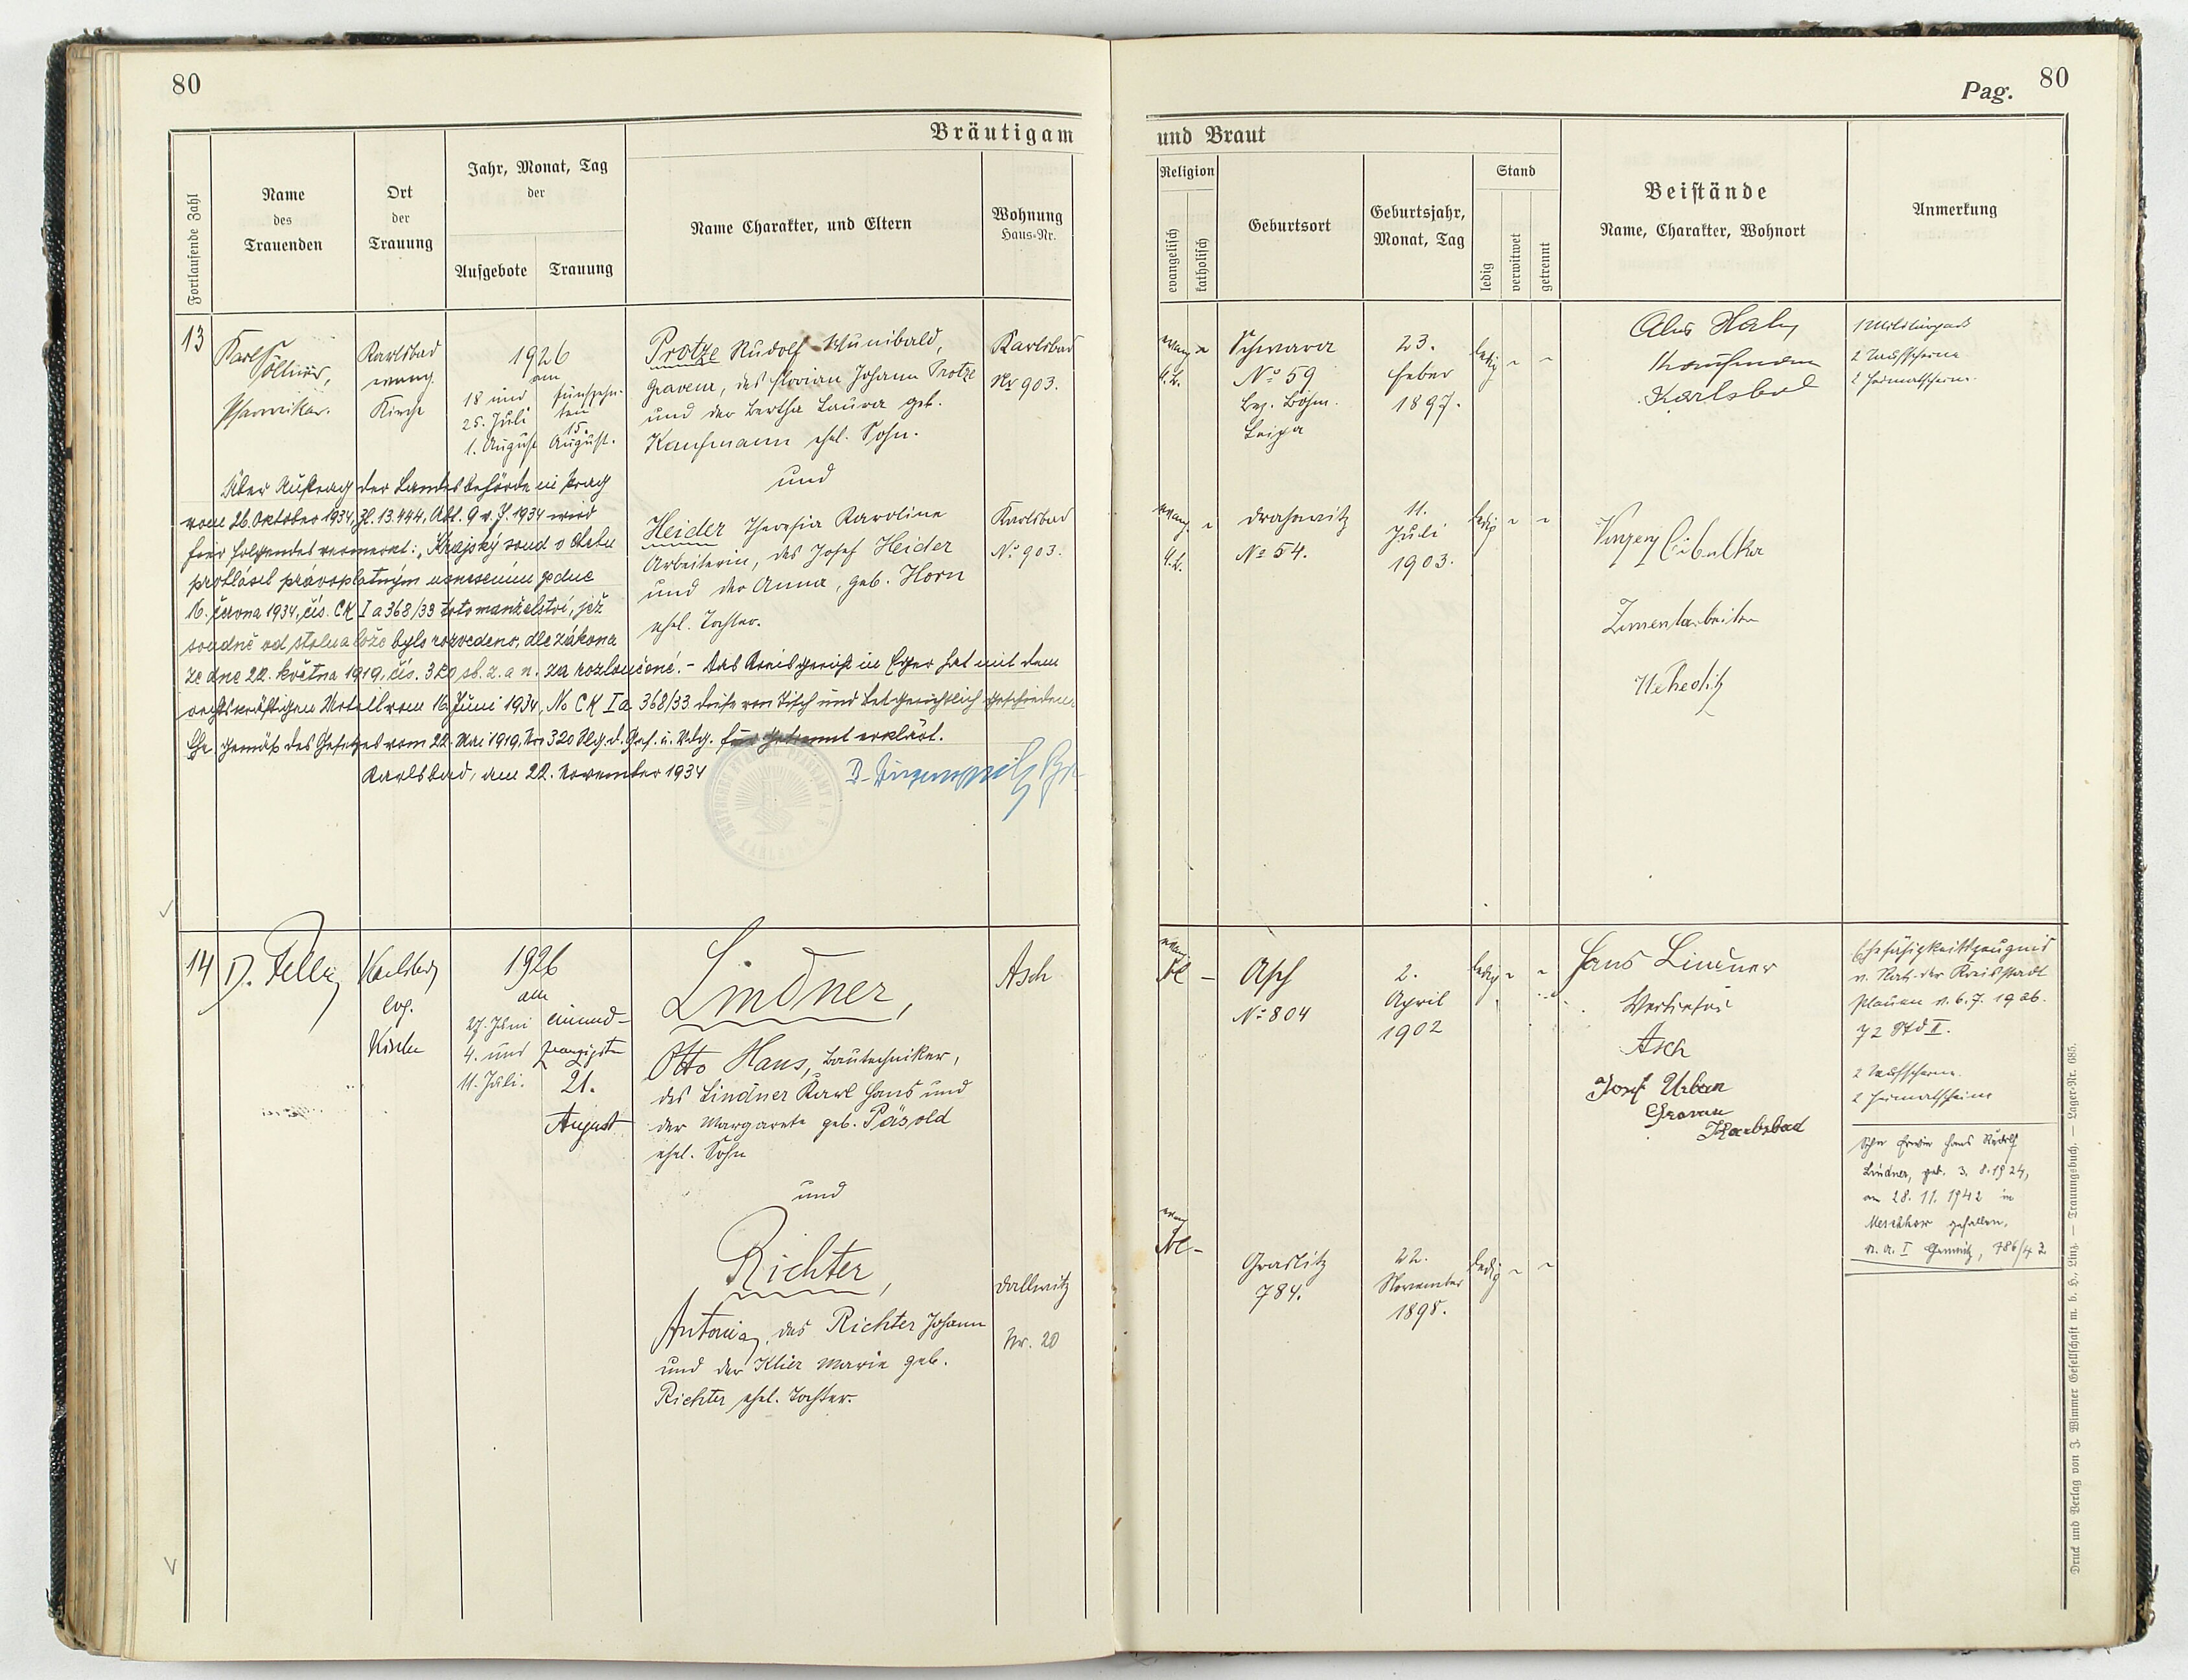 80
Bräutigam
Fortlaufende Zahl
Name
des
Trauenden
Ort
der
Trauung
Jahr, Monat, Tag
der
Aufgebote
Trauung
Name Charakter, und Eltern
Wohnung
Haus-Nr.
13
Karl
Söllner,
Pfarrvikar.
Karlsbad
evang.
Kirche
1926
am
18 und
25. Juli
1. August
fünfzehn-
ten
15.
August.
Protze Rudolf Wunibald,
Graveur, des Florian Johann Protze
und der Bertha Laura geb.
Kaufmann ehel. Sohn.
und
Karlsbad
Nr 903.
Heider Theresia Karoline
Arbeiterin, des Josef Heider
und der Anna, geb. Horn
ehel. Tochter.
Karlsbad
No 903.
Über Auftrag der Landesbehörde in Prag
vom 26. Oktober 1934, Zl. 13.444, Abt. 9 v. J. 1934 wird
hier folgendes vermerkt: „Krajský soud v Chebu
prohlásil právoplatným usnesením ze dne
16. června 1934, čís. CK I a 368/33 toto manželství, jež
soudně od stolu a lože bylo rozvedeno, dle zákona
ze dne 22. května 1919, čís. 320 sb. z. a n. za rozloučené. – Das Kreisgericht in Eger hat mit dem
rechtskräftigen Urteil vom 16 Juni 1934, No CK I a 368/33 diese von Tisch und Bet gerichtlich geschiedene
Ehe gemäß des Gesetzes vom 22. Mai 1919, Nr. 320 Slg. d. Ges. u. Vdg. für getrennt erklärt.
Karlsbad, am 22. November 1934
14
D. Felli
Karlsbad
evg.
Kirche
1926
am
27. Juni
4. und
11. Juli.
einund-
zwanzigsten
21.
August
Lindner,
Otto Hans, Bautechniker,
des Lindner Karl Hans und
der Margarete geb. Päsold
ehel. Sohn
und
Asch
Richter,
Antonia, des Richter Johann
und der Klier Marie geb.
Richter ehel. Tochter.
Dallwitz
Nr. 20
Pag. 80
und Braut
Religion
evangelisch
katholisch
Geburtsort
Geburtsjahr,
Monat, Tag
Stand
ledig
verwitwet
getrennt
Beistände
Name, Charakter, Wohnort
Anmerkung
evang.
A.B.
Schwora
No 59
Bez. Böhm.
Leipa
23.
Feber
1897.
ledig
Kaufmann
Karlsbad
1 Militärpaß
2 Taufscheine
2 Heimatscheine.
evang.
A.B.
Drahowitz
No 54.
11.
Juli
1903.
ledig
Cibulka
Zementarbeiter
evang
AB –
Asch
No 804
2.
April
1902
ledig
Hans Lindner
Asch
Josef Urban
Graveur
Karlsbad
Ehefähigkeitszeugnis
v. Rat der Kreisstadt
Plauen v. 6. 7. 1926.
72 Std II.
2 Taufscheine.
2 Heimatscheine
Sohn Erwin Hans Rudolf
Lindner, geb. 3. 8. 1924,
am 28. 11. 1942 in
gefallen.
786/42
evang
AB –
Graslitz
784.
22.
November
1898.
ledig
Druck und Verlag von J. Wimmer Gesellschaft m. b. H., Linz. — Trauungsbuch. — Lager-Nr. 685.